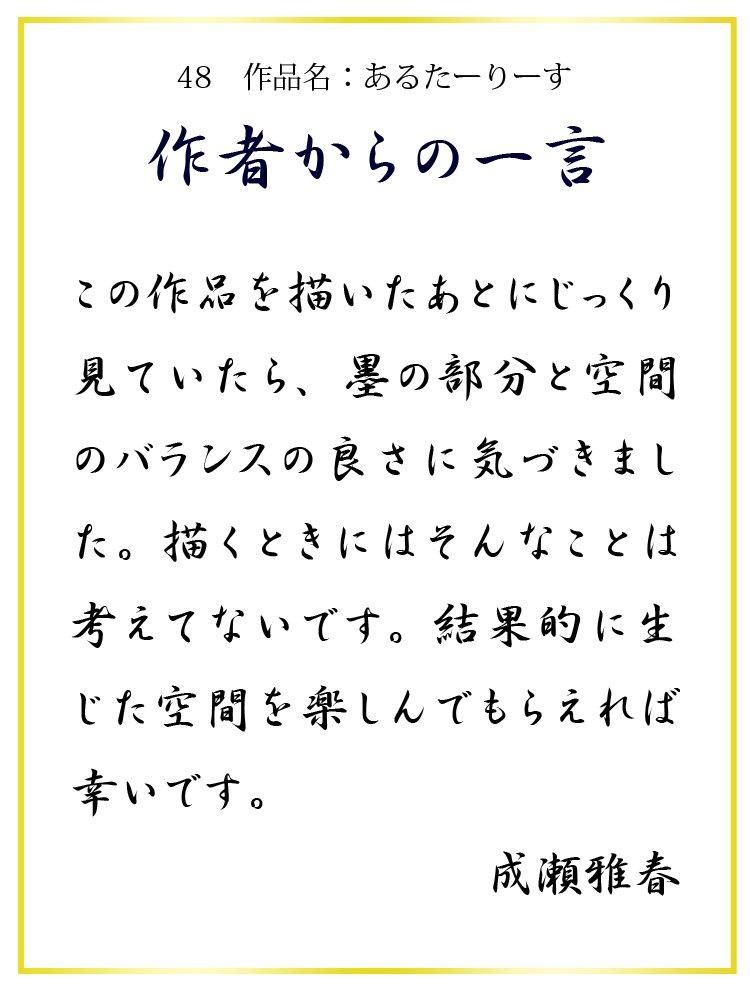 48　作品名：あるたーりーす
作者からの一言
この作品を描いたあとにじっくり
見ていたら、墨の部分と空間
のバランスの良さに気づきまし
た。描くときにはそんなことは
考えてないです。結果的に生
じた空間を楽しんでもらえれば
幸いです。
成瀬雅春